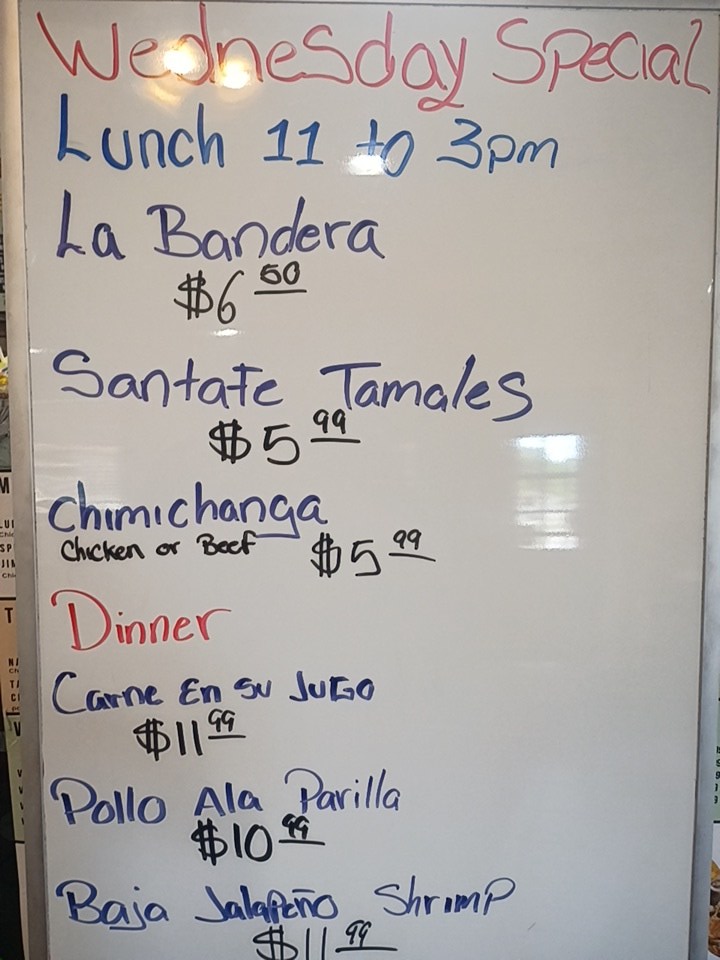 Wednesday Special
Lunch 11 to 3pm
La Bandera
$6 50
Santafe Tamales
$5 99
Chimichanga
Chicken or Beef $5 99
Dinner
Carne En Su Jugo
$11 99
Pollo Ala Parilla
$10 99
Baja Jalapeño Shrimp
$11 99